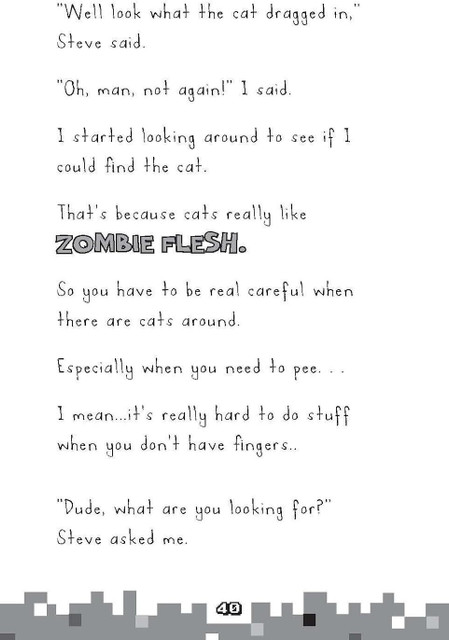 "Well look what the cat dragged in,"
Steve said.
"Oh, man, not again!" I said.
I started looking around to see if I
could find the cat.
That's because cats really like
ZOMBIE FLESH.
So you have to be real careful when
there are cats around.
Especially when you need to pee. . .
I mean...it's really hard to do stuff
when you don't have fingers..
"Dude, what are you looking for?"
Steve asked me.
40